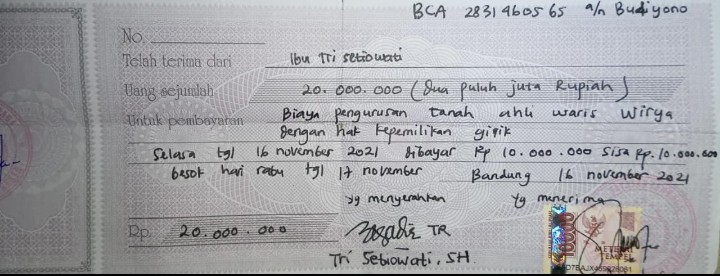 BCA 2831460565 a/n Budiyono
No.
Telah terima dari Ibu Tri Setiowati
Uang sejumlah 20.000.000 (dua puluh juta Rupiah)
Untuk pembayaran Biaya pengurusan tanah ahli waris Wirya
dengan hak kepemilikan girik
Selasa tgl 16 november 2021 dibayar Rp 10.000.000 Sisa Rp. 10.000.000
besok hari rabu tgl 17 november Bandung 16 november 2021
yg menyerahkan yg menerima
Rp. 20.000.000 TR
Tri Setiowati, SH
10000
METERAI
TEMPEL